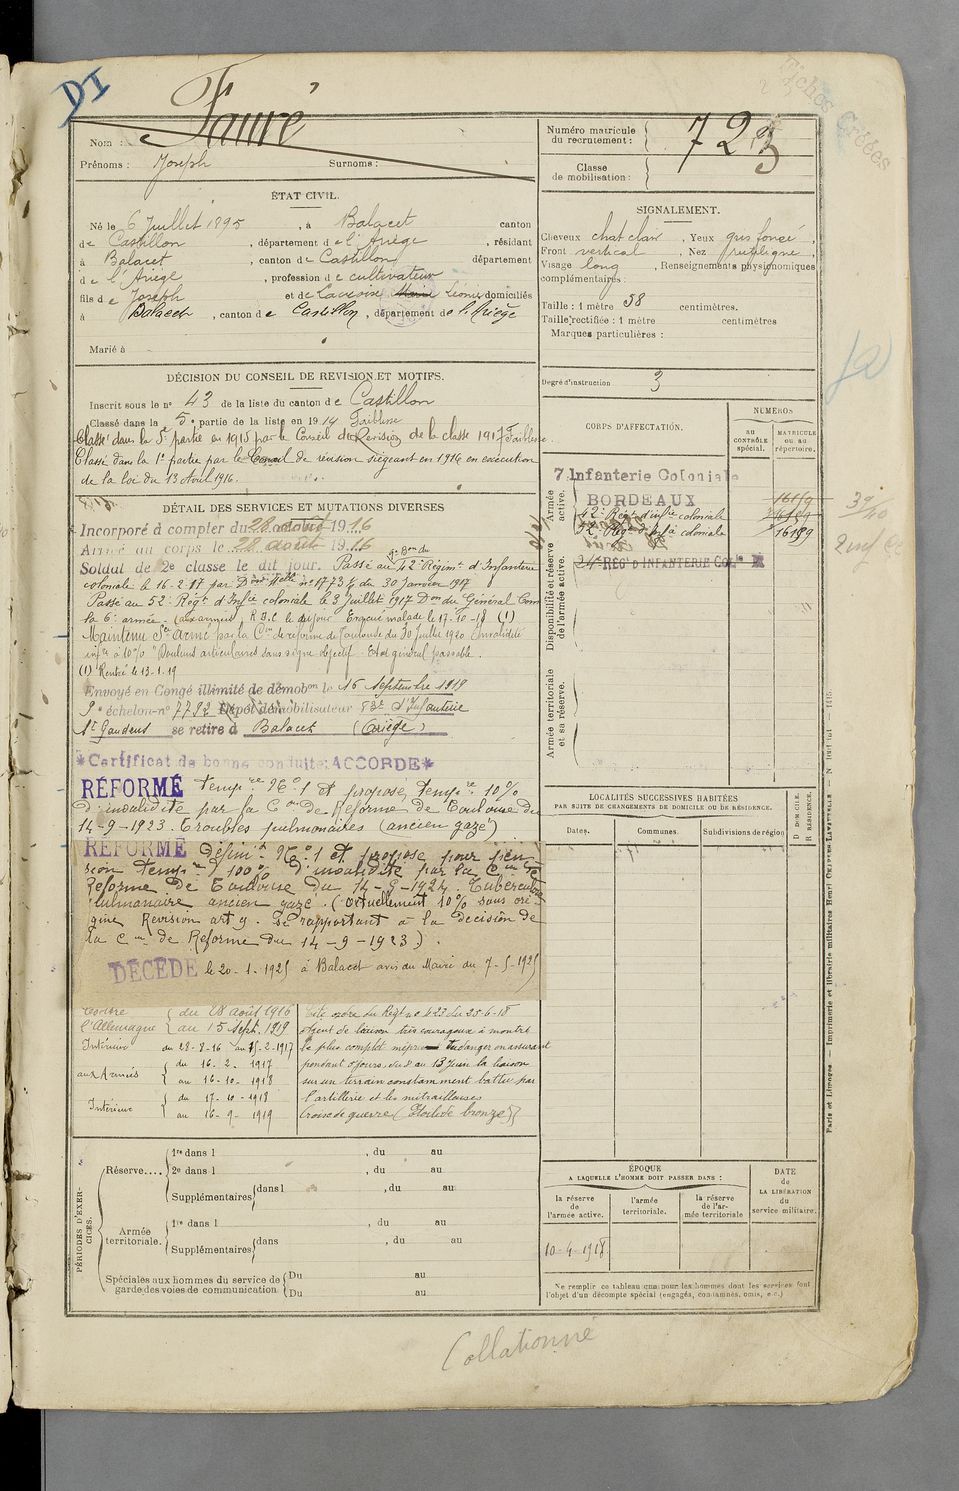 DI
Fiches Créées
Nom : Fauré
Prénoms : Joseph Surnoms :
Numéro matricule du recrutement : 723
Classe de mobilisation :
ÉTAT CIVIL.
Né le 6 Juillet 1895, à Balacet canton
de Castillon, département de l'Ariège, résidant
à Balacet, canton de Castillon département
de l'Ariège, profession de cultivateur
fils de Joseph et de Lionie domiciliés
à Balacet, canton de Castillon, département de l'Ariège
Marié à
SIGNALEMENT.
Cheveux chat clair, Yeux gris foncé,
Front vertical, Nez rectiligne,
Visage long, Renseignements physionomiques
complémentaires :
Taille : 1 mètre 58 centimètres.
Taille rectifiée : 1 mètre centimètres
Marques particulières :
Degré d'instruction 3
DÉCISION DU CONSEIL DE REVISION ET MOTIFS.
Inscrit sous le n° 43 de la liste du canton de Castillon
Classé dans la 5e partie de la liste en 1914 Faiblesse
Classé dans la 5e partie en 1915 par le Conseil de Revision de la classe 1917 Faiblesse
Classé dans la 1e partie par le Conseil de révision siégeant en 1916 en exécution
de la loi du 13 Avril 1916.
DÉTAIL DES SERVICES ET MUTATIONS DIVERSES
Incorporé à compter du 28 août 1916
Arrivé au corps le 28 août 1916
Soldat de 2e classe le dit jour. Passé au 42e Régimt d'Infanterie
coloniale le 16-2-17 par Don Melle n° 1773 du 30 Janvier 1917
Passé au 52e Régt d'Infie coloniale le 3 Juillet 1917 Don du Général Com
la 6e armée. (aux armées) le dit jour Evacué malade le 17-10-18 (1)
Maintenu Sce armé par la Con de réforme de Toulouse du 30 Juillet 1920 Invalidité
infre à 10% "Douleurs articulaires sans signe objectif. Etat général passable.
(1) Rentré le 13-1-19
Envoyé en Congé illimité de démobon le 16 Septembre 1919
9e échelon n° 7792 Dépôt démobilisateur 83e d'Infanterie
St Gaudens se retire à Balacet (Ariège)
*Certificat de bonne conduite: ACCORDE*
RÉFORMÉ tempre N° 1 et proposé tempre 10%
d'invalidité par la Con de Réforme de Toulouse du
14-9-1923. Troubles pulmonaires (ancien gazé)
RÉFORMÉ Définit N° 1 et proposé pour pen
sion tempre 100% d'invalidité par la Con de
Réforme de Toulouse du 14-9-1924. Tuberculose
pulmonaire ancien gazé. (Actuellement 10% sans ori
gine Revision art 9. Se rapportant à la décision de
la Con de Réforme du 14-9-1923).
DÉCÉDÉ le 20-1-1925 à Balacet avis du Maire du 7-5-1925
Contre l'Allemagne { du 28 août 1916 au 15 Sept. 1919
Intérieur du 28-8-16 au 15-2-1917
aux Armées { du 16-2-1917 au 16-10-1918
Intérieur { du 17-10-1918 au 16-9-1919
Cité ordre du Régt n° 423 du 25-6-18
Agent de liaison très courageux a montré
le plus complet mépris du danger en assurant
pendant 5 jours, du 8 au 13 Juin la liaison
sur un terrain constamment battu par
l'artillerie et les mitrailleuses
Croix de guerre (Etoile de bronze)
CORPS D'AFFECTATION.
NUMÉROS
au CONTRÔLE spécial.
MATRICULE ou au répertoire.
Armée active.
7 Infanterie Coloniale
BORDEAUX 16159
42e Régt d'infie coloniale
52e Régt d'infie coloniale 16199
24e RÉGt D'INFANTERIE COLle
Disponibilité et réserve de l'armée active.
Armée territoriale et sa réserve.
LOCALITÉS SUCCESSIVES HABITÉES
PAR SUITE DE CHANGEMENTS DE DOMICILE OU DE RÉSIDENCE.
Dates. Communes. Subdivisions de région D DOMICILE. R RÉSIDENCE.
ÉPOQUE
A LAQUELLE L'HOMME DOIT PASSER DANS :
la réserve de l'armée active.
l'armée territoriale.
la réserve de l'armée territoriale
DATE de LA LIBÉRATION du service militaire.
10-4-1918
Ne remplir ce tableau que pour les hommes dont les services font
l'objet d'un décompte spécial (engagés, condamnés, omis, etc.)
PÉRIODES D'EXERCICES.
Réserve.... 1re dans l , du au
2e dans l , du au
Supplémentaires dans l , du au
Armée territoriale. 1re dans l , du au
Supplémentaires dans , du au
Spéciales aux hommes du service de garde des voies de communication. Du au
Du au
Paris et Limoges — Imprimerie et librairie militaires Henri CHARLES-LAVAUZELLE
Collationné